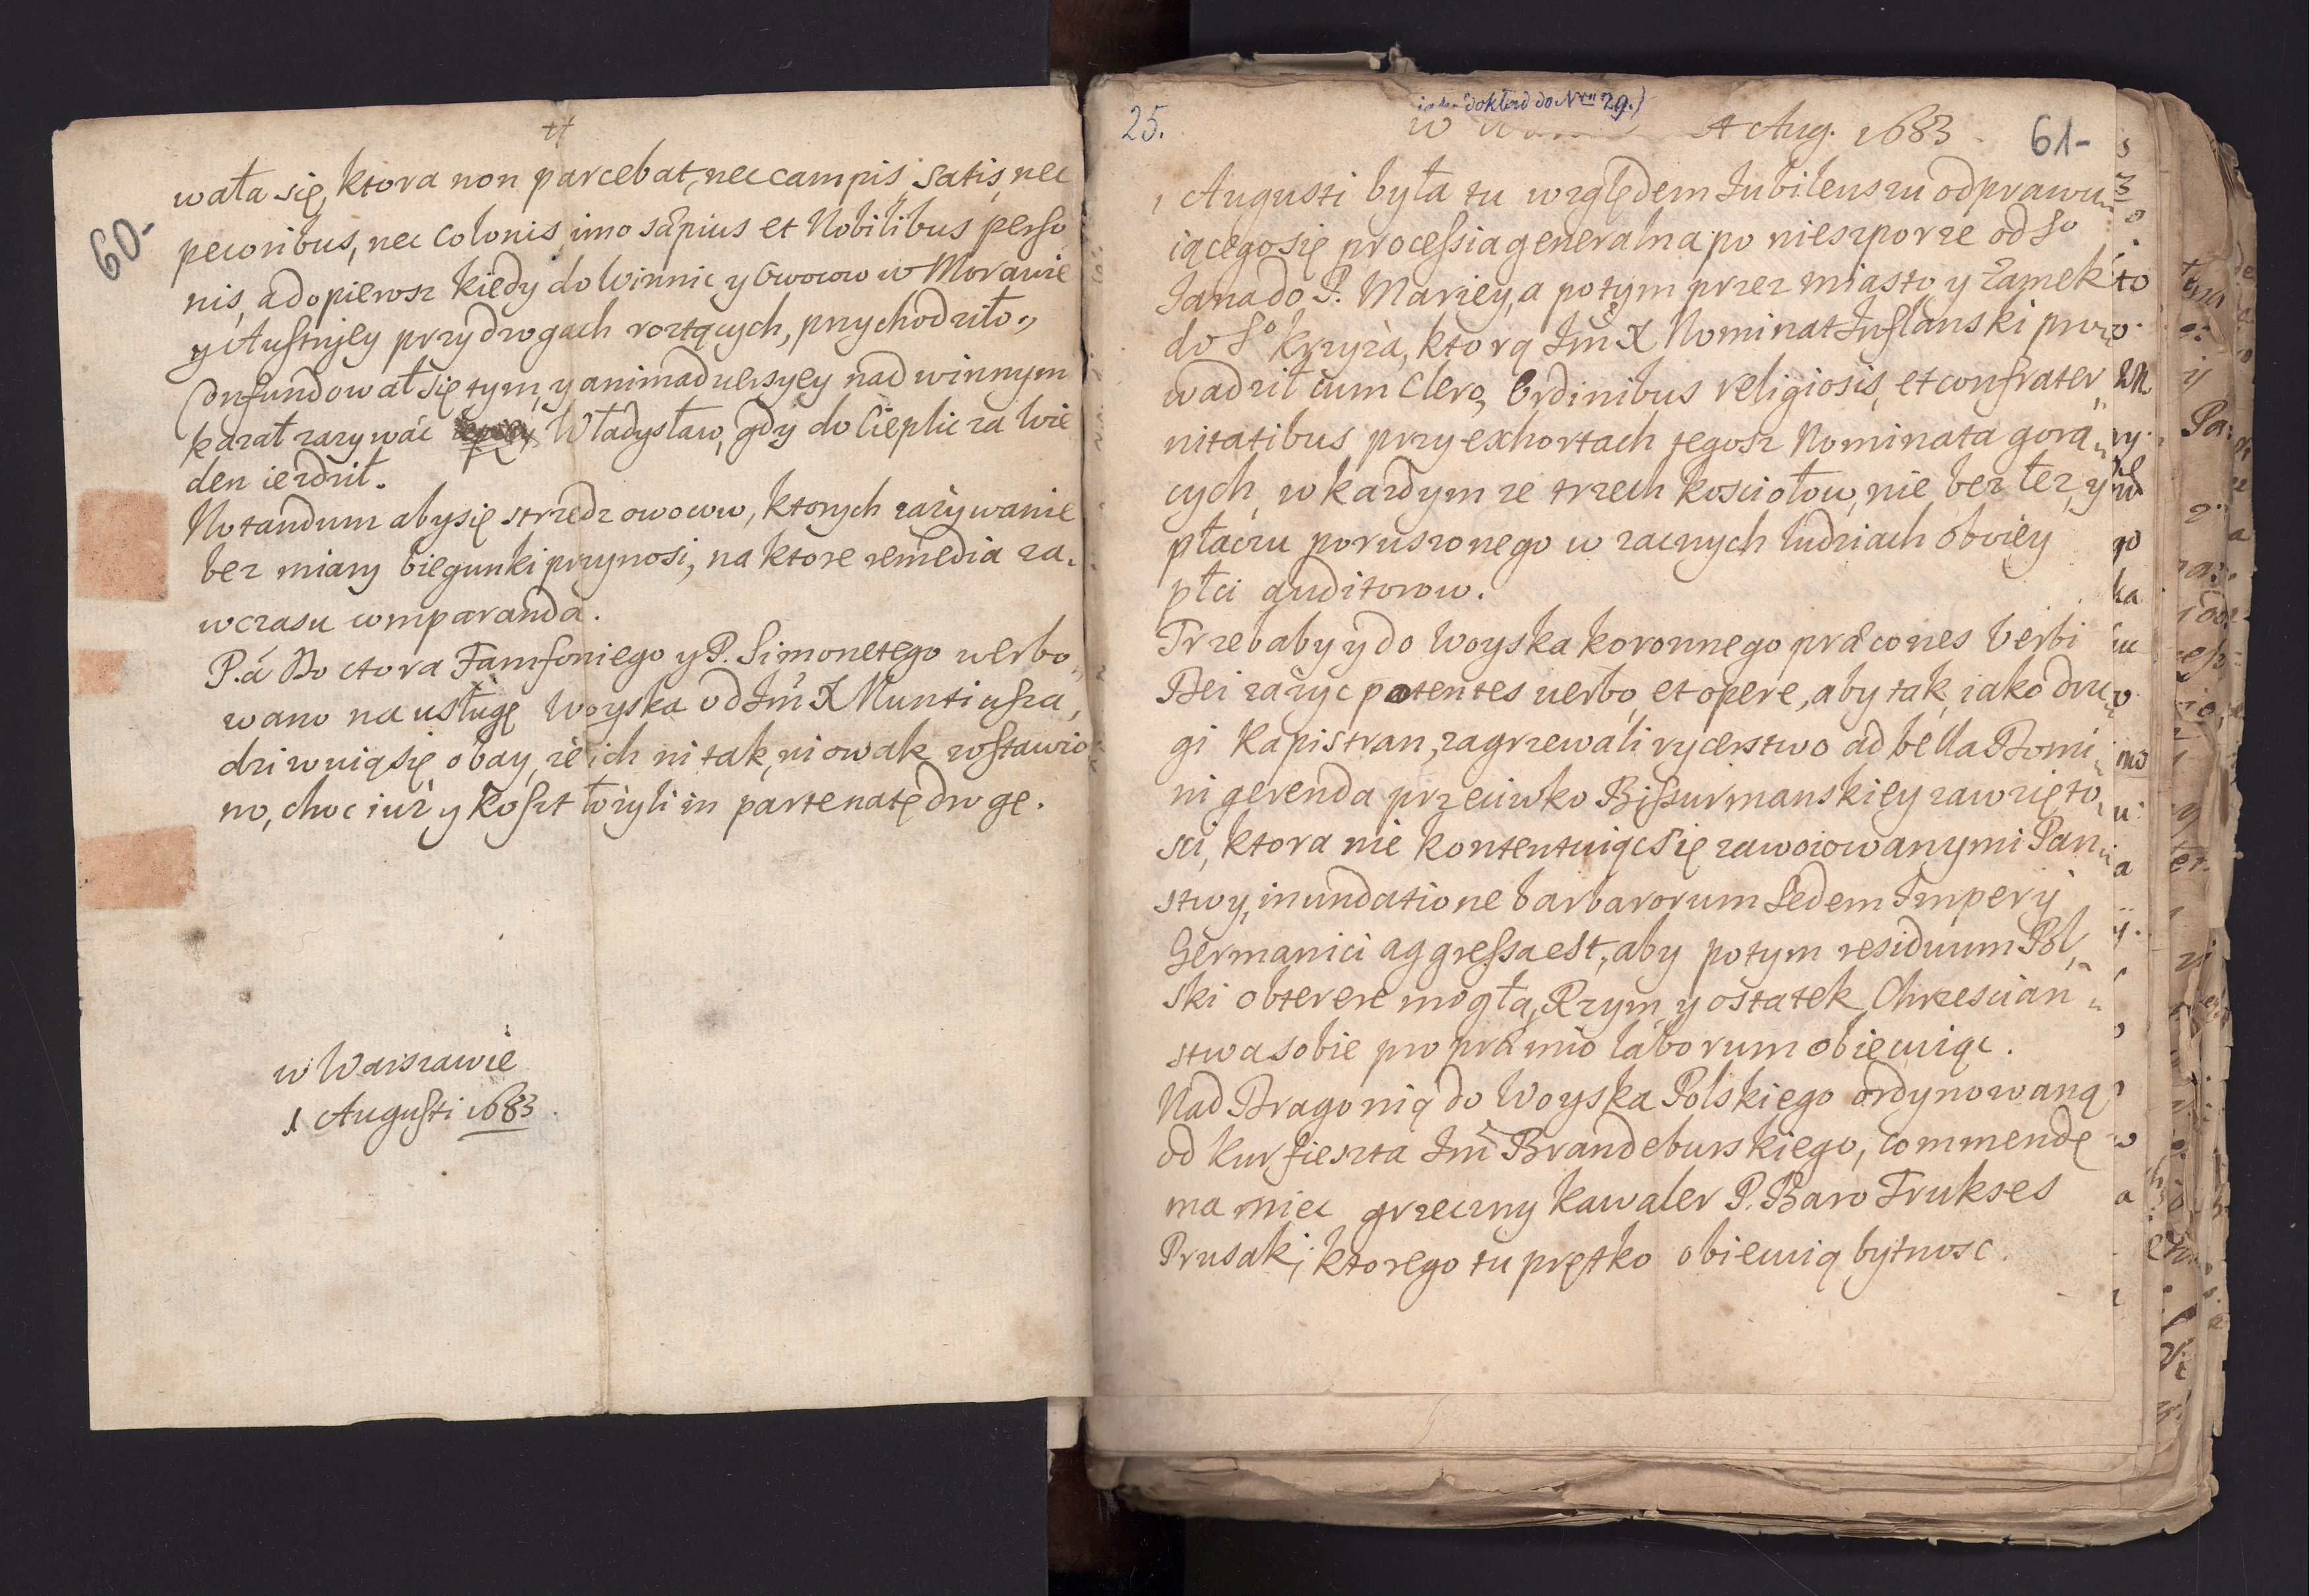 60-
wała się, ktora non parcebat, nec campis satis, nec
pecoribus, nec Colonis, imo sæpius et Nobilibus perso
nis, a dopierosz kiedy do Winnic y Owocow w Morawie
y Austryey przy drogach roztących, przychodziło.,
Confundował się tym, y animadversyey nad winnym
kazał zazywać Władysław, gdy do Cieplic za Wie
den iezdził.
Notandum aby się strzedz owocow, ktorych zażywanie
bez miary biegunki przynosi, na ktore remedia za-
wczasu comparanda.
P.a Doctora Tamfoniego y P. Simonetego werbo„
wano na usługę Woyska od Jm X Nuntiusza,
dziwuią się obay, że ich ni tak, ni owak zostawio
no, choc iuż y koszt łożyli in parte na tę drogę.
w Warszawie
1 Augusti 1683.
25.
dokład do Nru 29.)
w 4 Aug. 1683.
61-
1 Augusti była tu względem Jubileuszu odprawu„
iącego się processia generalna po nieszporze od So
Jana do P. Mariey, a potym przez miasto y Zamek
do So Krzyża, ktorą Jm X Nominat Inflanski pro„
wadził cum Clero, Ordinibus religiosis, et confrater„
nitatibus przy exhortach tegosz Nominata gorą„
cych, w kazdym ze trzech kosciołow, nie bez łez, y
płaczu poruszonego w zacnych ludziach oboiey
płci auditorow.
Trzebaby y do Woyska koronnego præcones Verbi
Dei zażyc potentes verbo, et opere, aby tak, iako dru„
gi Kapistran, zagrzewali rycerstwo ad bella Domi„
ni gerenda przeciwko Bissurmanskiey zawzięto„
sci, ktora nie kontentuiąc się zawoiowanymi Pan„
stwy, inundatione barbarorum Sedem Imperij
Germanici aggressa est, aby potym residuum Pol„
ski obterere mogła, Rzym, y ostatek Chrzescian„
stwa sobie pro præmio laborum obiecuiąc.
Nad Dragonią do Woyska Polskiego ordynowaną
od Kurfieszta Jm Brandeburskiego, commendę
ma miec grzeczny Kawaler P. Baro Trukses
Prusak, ktorego tu prętko obiecuią bytnosc.